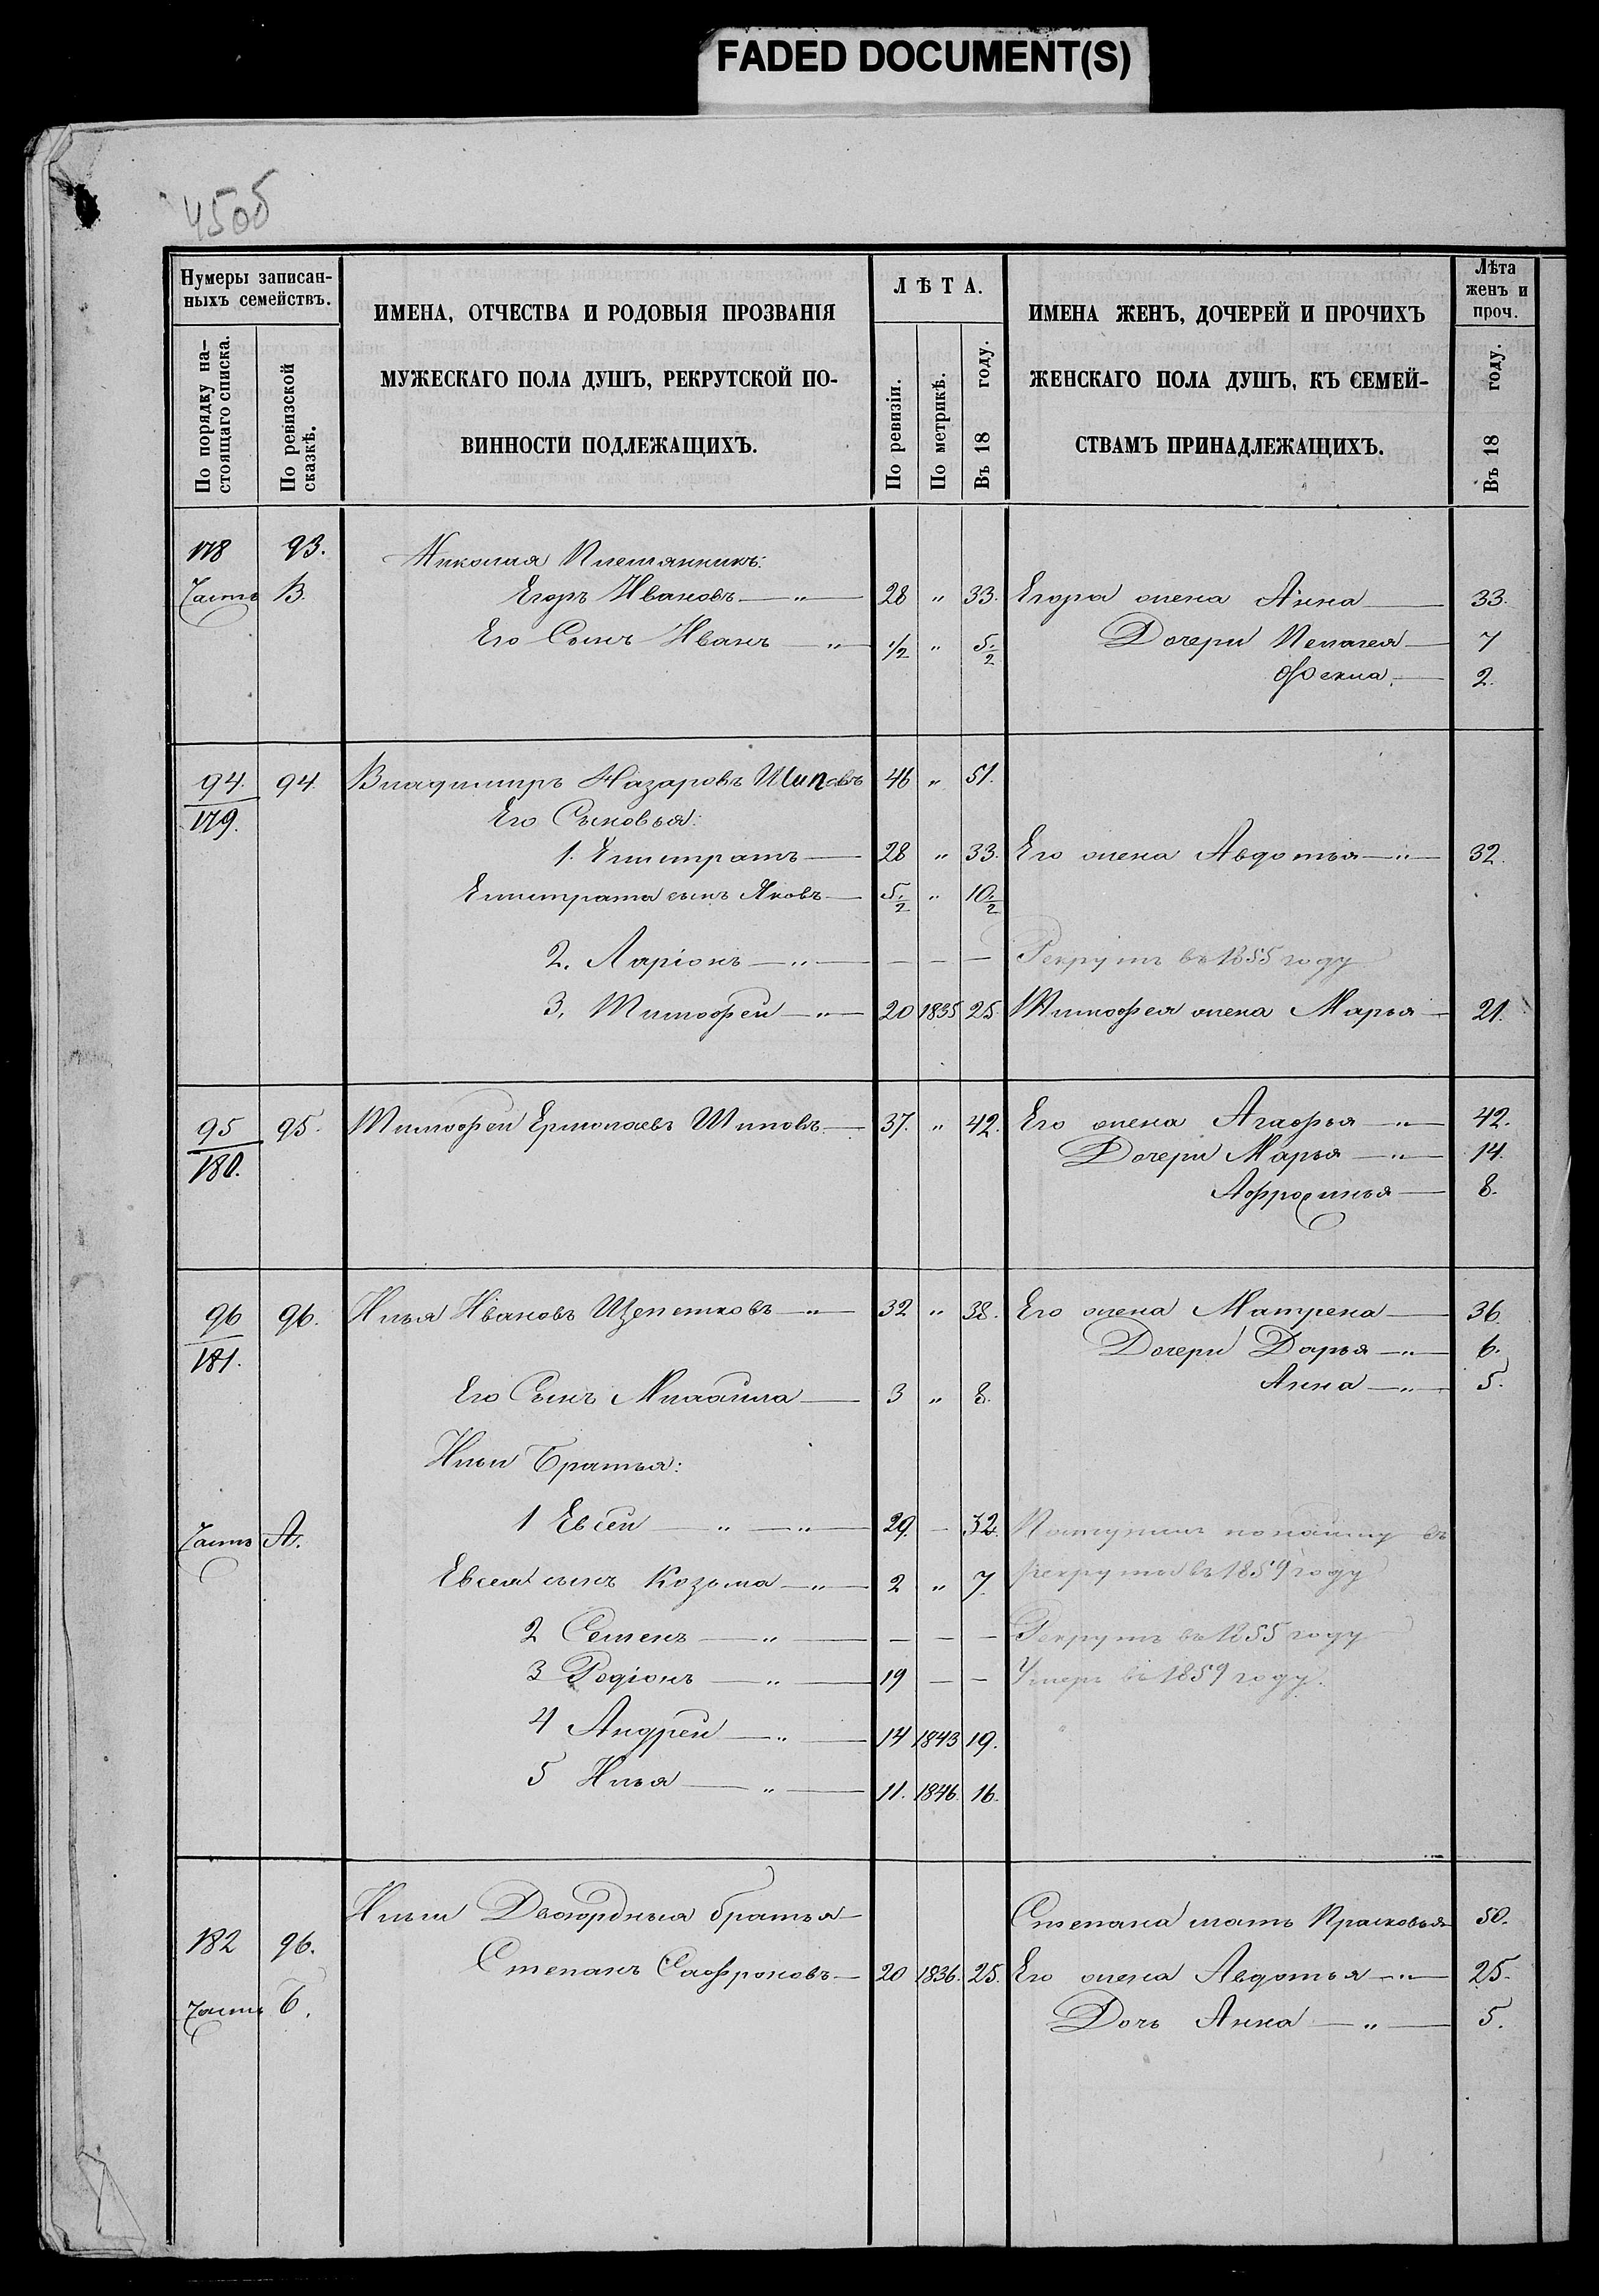 FADED DOCUMENT(S)
45об
Нумеры записан-
ныхъ семействъ.
По порядку на-
стоящаго списка.
По ревизской
сказкѣ.
ИМЕНА, ОТЧЕСТВА И РОДОВЫЯ ПРОЗВАНІЯ
МУЖЕСКАГО ПОЛА ДУШЪ, РЕКРУТСКОЙ ПО-
ВИННОСТИ ПОДЛЕЖАЩИХЪ.
ЛѢТА.
По ревизіи.
По метрикѣ.
Въ 18 году.
ИМЕНА ЖЕНЪ, ДОЧЕРЕЙ И ПРОЧИХЪ
ЖЕНСКАГО ПОЛА ДУШЪ, КЪ СЕМЕЙ-
СТВАМЪ ПРИНАДЛЕЖАЩИХЪ.
Лѣта
женъ и
проч.
Въ 18 году.
178 93. Николая Племянникъ:
Часть В. Егоръ Ивановъ — " — 28 " 33. Егора жена Анна — 33.
Его Сынъ Иванъ — " — 1/2 " 5 1/2 Дочери Пелагея — 7
Фекла. — 2.
94. 94. Владимиръ Назаровъ Шиповъ 46 " 51.
179. Его Сыновья:
1. Елистратъ — 28 " 33. Его жена Авдотья — " — 32.
Елистрата сынъ Яковъ — 5 1/2 " 10 1/2
2. Ларіонъ — " — — — — Рекрутъ въ 1855 году
3. Тимофей — " — 20 1835 25. Тимофея жена Марья — 21.
95 95. Тимофей Ермолаевъ Шиповъ. — 37. " 42. Его жена Агафья — " — 42.
180. Дочери Марья — " — 14.
Афросинья — 8.
96 96. Илья Ивановъ Щепетковъ — " — 32 " 38. Его жена Матрена — 36.
181. Дочери Дарья — " — 6.
Его Сынъ Михайла — 3 " 8. Анна — " — 5.
Ильи Братья:
Часть А. 1 Евсей — " — " — 29. — 32. Поступилъ по найму въ
Евсея сынъ Козьма — " — 2 " 7. рекруты въ 1859 году
2 Семенъ — " — — — — Рекрутъ въ 1855 году
3 Родіонъ — " — 19 — — Умеръ въ 1859 году.
4 Андрей — " — 14 1843 19.
5 Илья — " — 11. 1846. 16.
Ильи Двоюрдныя братья — Степана мать Прасковья 50.
182 96. Степанъ Сафроновъ — 20 1836. 25. Его жена Авдотья — " — 25.
Часть Б. Дочь Анна — " — 5.